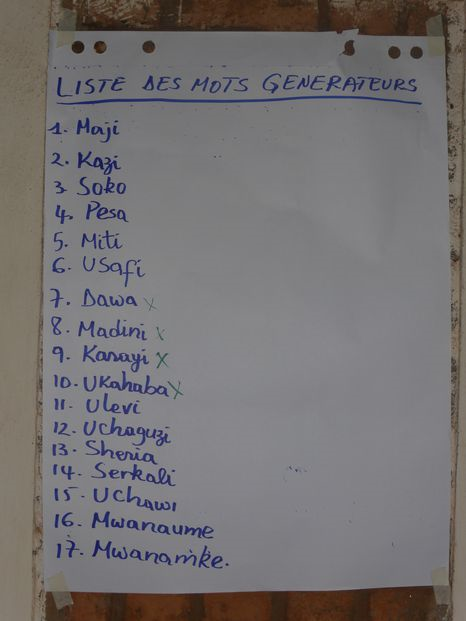 LISTE DES MOTS GENERATEURS
1. Maji
2. Kazi
3. Soko
4. Pesa
5. Miti
6. USafi
7. Dawa x
8. Madini x
9. Kanayi x
10. UKahaba x
11. Ulevi
12. Uchaguzi
13. Sheria
14. Serkali
15. UChawi
16. Mwanaume
17. Mwanamke.